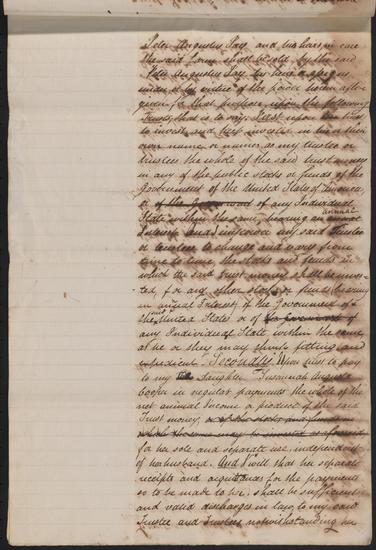 Peter Augustus Jay and his heirs, in case
the said farm shall be sold by the said
Peter Augustus Jay his heirs or assigns
under or by virtue of the power herein after
given for that purpose upon the following
Trusts, that is to say. First upon trust
to invest and keep invested in his or their
own name or names as my trustee or
trustees the whole of the said trust money
in any of the public stocks or funds of the
Government of the United States of America
or of the Government of any Individual
State within the same, bearing an annual
Interest and empower my said Trustee
or trustees to change and vary from
time to time, the stocks and funds in
which the said trust money shall be inves-
ted, for any other stocks or funds bearing
an annual Interest of the Government of
the United States or of the Government of
any Individual State within the same
as he or they may think fitting and
expedient. Secondly Upon trust to pay
to my Daughter Susannah August
in regular payments the whole of the
net annual Income or product of the said
Trust money, or of the stocks and funds in
which the same may be invested as aforesaid
for her sole and separate use, independent
of her husband. And I will that her separate
receipts and for the payments
so to be made to her, shall be sufficient
and valid discharges in law, to my said
Trustee and Trustees, notwithstanding her